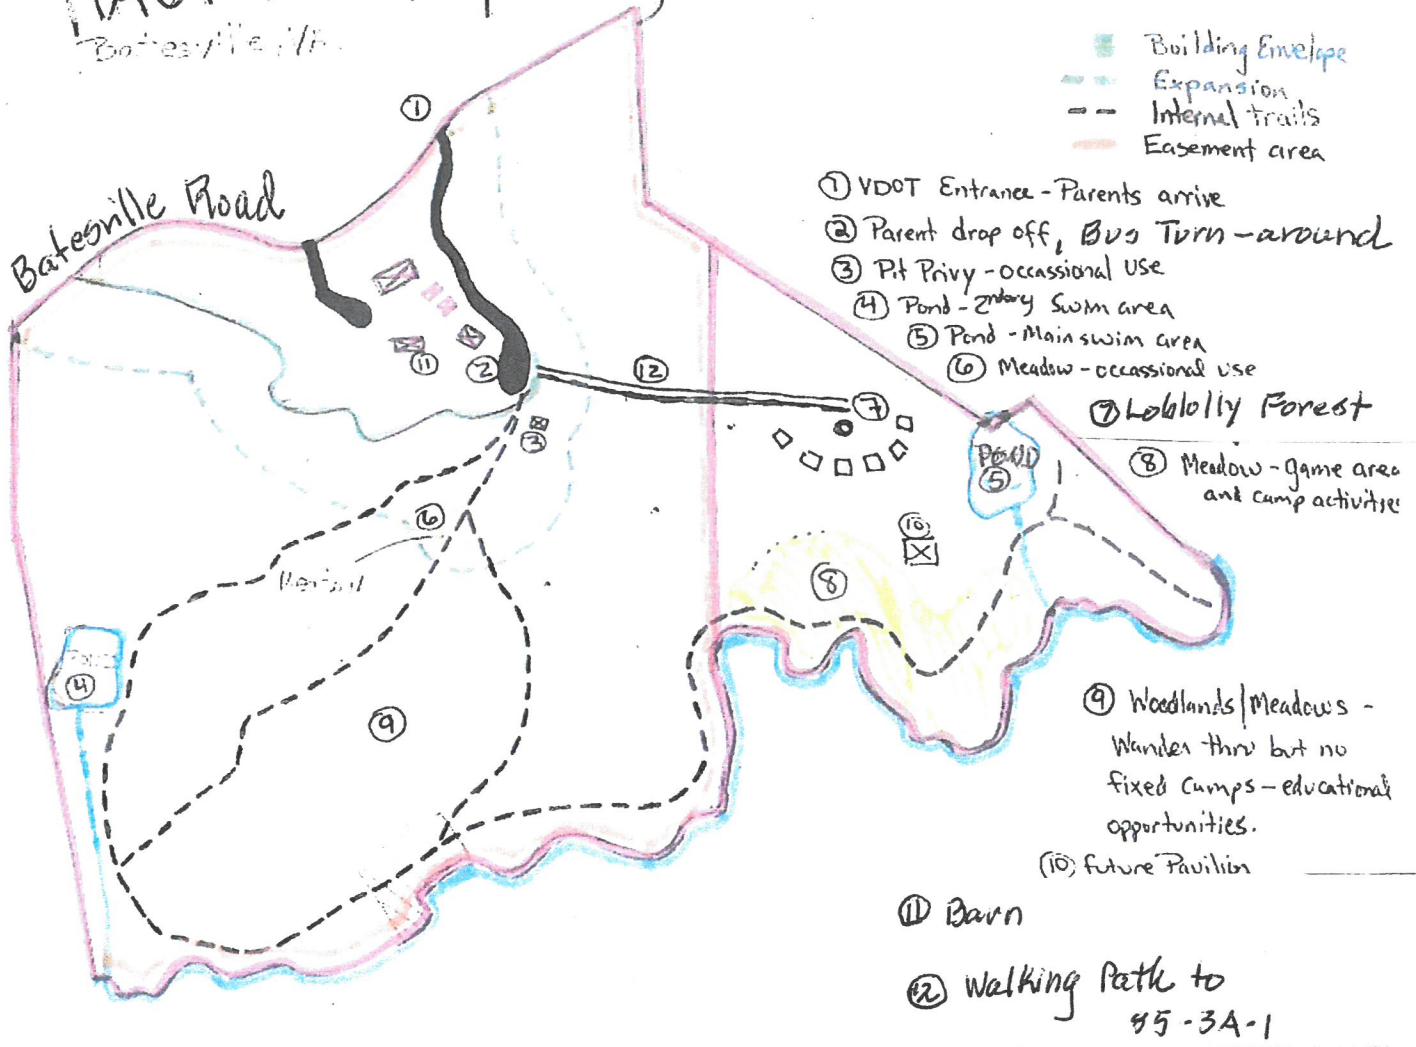 Batesville, VA.
Building Envelope
Expansion
Internal trails
Easement area
Batesville Road
① VDOT Entrance - Parents arrive
② Parent drop off, Bus Turn-around
③ Pit Privy - occassional use
④ Pond - 2ndary Swim area
⑤ Pond - Main swim area
⑥ Meadow - occassional use
⑦ Loblolly Forest
⑧ Meadow - game area
and camp activities
⑨ Woodlands/Meadows -
Wander thru but no
fixed camps - educational
opportunities.
⑩ future Pavilion
⑪ Barn
⑫ Walking Path to
85-3A-1
①
⑪
②
⑫
⑦
③
POND
⑤
⑥
⑩
⑧
④
⑨